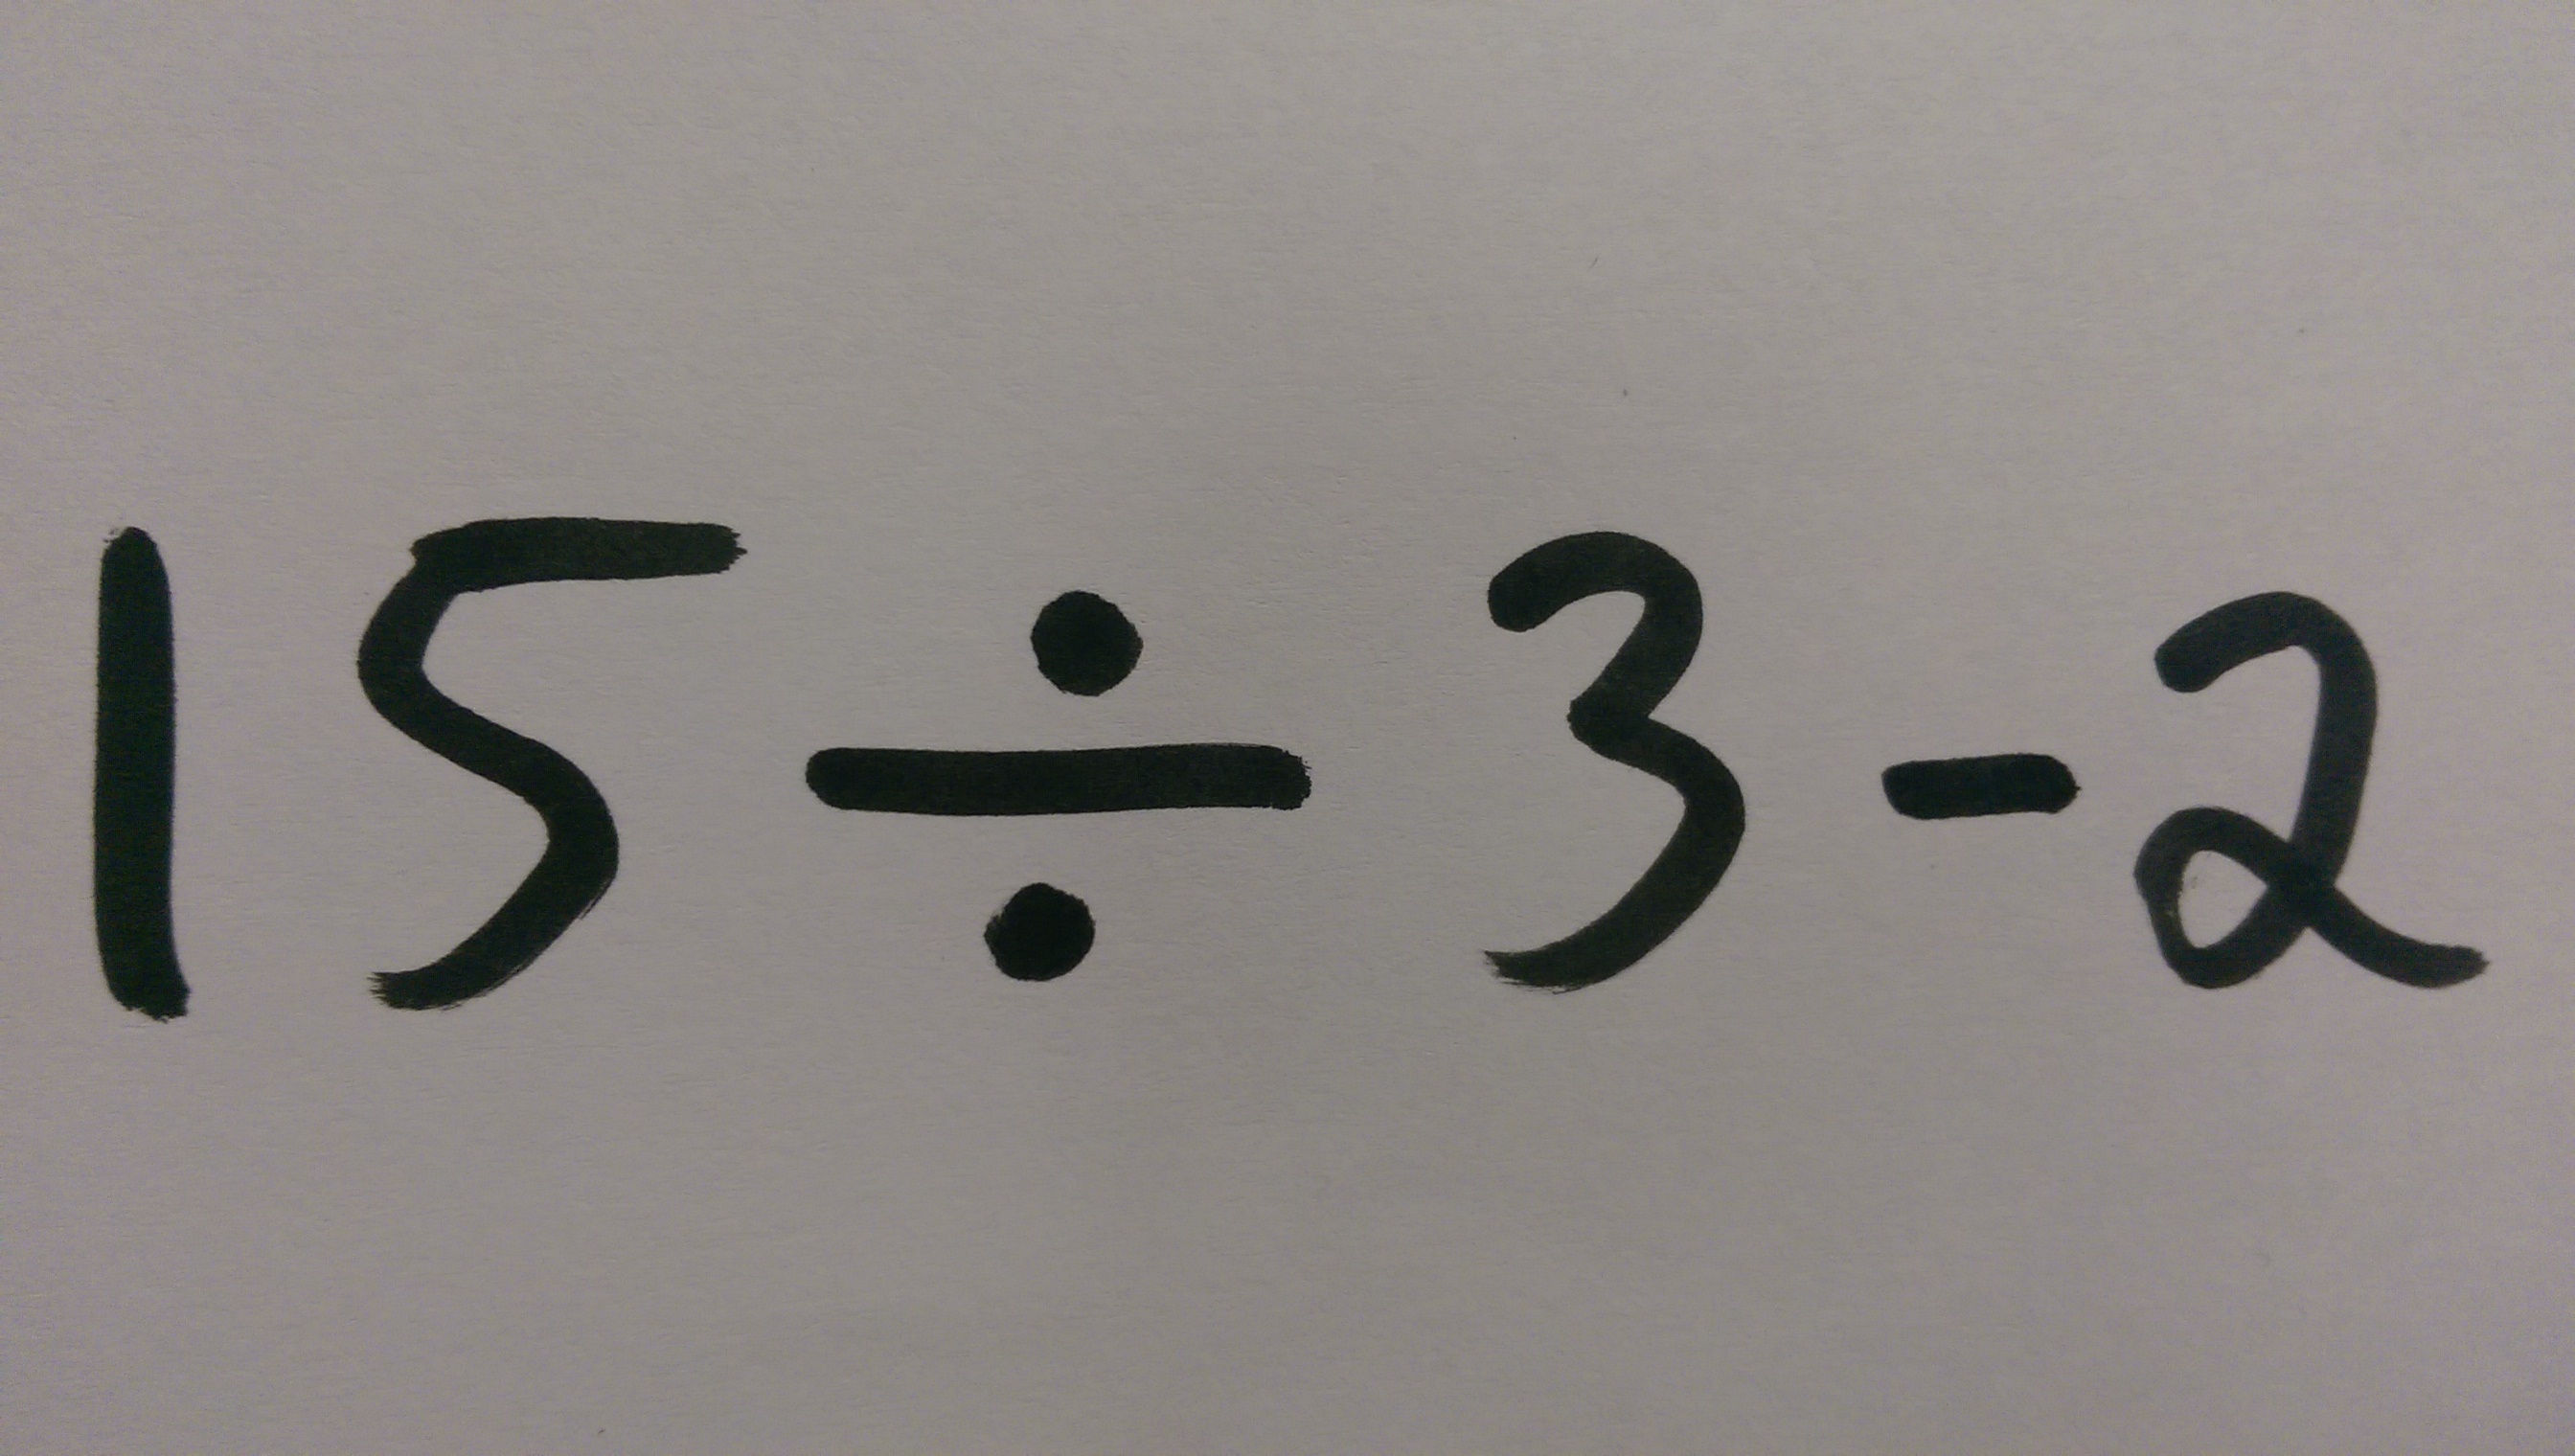 15÷3-2